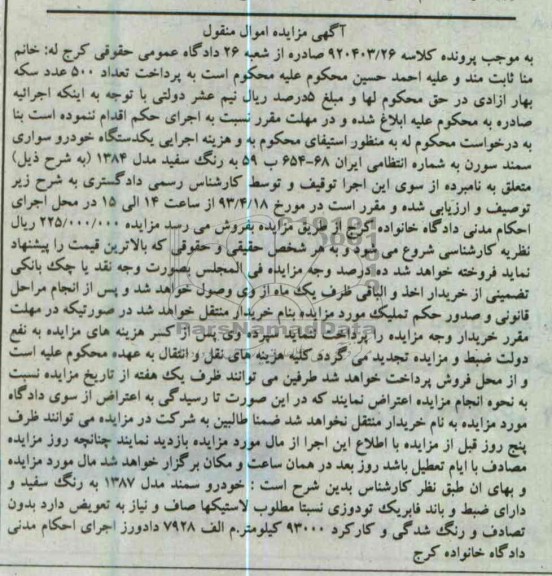 آگهی مزایده اموال منقول
به موجب پرونده کلاسه ۹۲۰۴۰۳/۲۶ صادره از شعبه ۲۶ دادگاه عمومی حقوقی کرج له: خانم
منا ثابت مند و علیه احمد حسین محکوم علیه محکوم است به پرداخت تعداد ۵۰۰ عدد سکه
بهار ازادی در حق محکوم لها و مبلغ ۵درصد ریال نیم عشر دولتی با توجه به اینکه اجرائیه
صادره به محکوم علیه ابلاغ شده و در مهلت مقرر نسبت به اجرای حکم اقدام ننموده است بنا
به درخواست محکوم له به منظور استیفای محکوم به و هزینه اجرایی یکدستگاه خودرو سواری
سمند سورن به شماره انتظامی ایران ۶۸-۶۵۴ ب ۵۹ به رنگ سفید مدل ۱۳۸۴ (به شرح ذیل)
متعلق به نامبرده از سوی این اجرا توقیف و توسط کارشناس رسمی دادگستری به شرح زیر
توصیف و ارزیابی شده و مقرر است در مورخ ۹۳/۴/۱۸ از ساعت ۱۴ الی ۱۵ در محل اجرای
احکام مدنی دادگاه خانواده کرج از طریق مزایده بفروش می رسد مزایده ۲۲۵/۰۰۰/۰۰۰ ریال
نظریه کارشناسی شروع می شود و به هر شخص حقیقی و حقوقی که بالاترین قیمت را پیشنهاد
نماید فروخته خواهد شد ده درصد وجه مزایده فی المجلس بصورت وجه نقد یا چک بانکی
تضمینی از خریدار اخذ و الباقی ظرف یک ماه از وی وصول خواهد شد و پس از انجام مراحل
قانونی و صدور حکم تملیک مورد مزایده بنام خریدار منتقل خواهد شد در صورتیکه در مهلت
مقرر خریدار وجه مزایده را پرداخت ننماید سپرده وی پس از کسر هزینه های مزایده به نفع
دولت ضبط و مزایده تجدید می گردد کلیه هزینه های نقل و انتقال به عهده محکوم علیه است
و از محل فروش پرداخت خواهد شد طرفین می توانند ظرف یک هفته از تاریخ مزایده نسبت
به نحوه انجام مزایده اعتراض نمایند که در این صورت تا رسیدگی به اعتراض از سوی دادگاه
مورد مزایده به نام خریدار منتقل نخواهد شد ضمنا طالبین به شرکت در مزایده می توانند ظرف
پنج روز قبل از مزایده با اطلاع این اجرا از مال مورد مزایده بازدید نمایند چنانچه روز مزایده
مصادف با ایام تعطیل باشد روز بعد در همان ساعت و مکان برگزار خواهد شد مال مورد مزایده
و بهای ان طبق نظر کارشناس بدین شرح است : خودرو سمند مدل ۱۳۸۷ به رنگ سفید و
دارای ضبط و باند فابریک تودوزی نسبتا مطلوب لاستیکها صاف و نیاز به تعویض دارد بدون
تصادف و رنگ شدگی و کارکرد ۹۳۰۰۰ کیلومتر.م الف ۷۹۲۸ دادورز اجرای احکام مدنی
دادگاه خانواده کرج
ParsNamadData